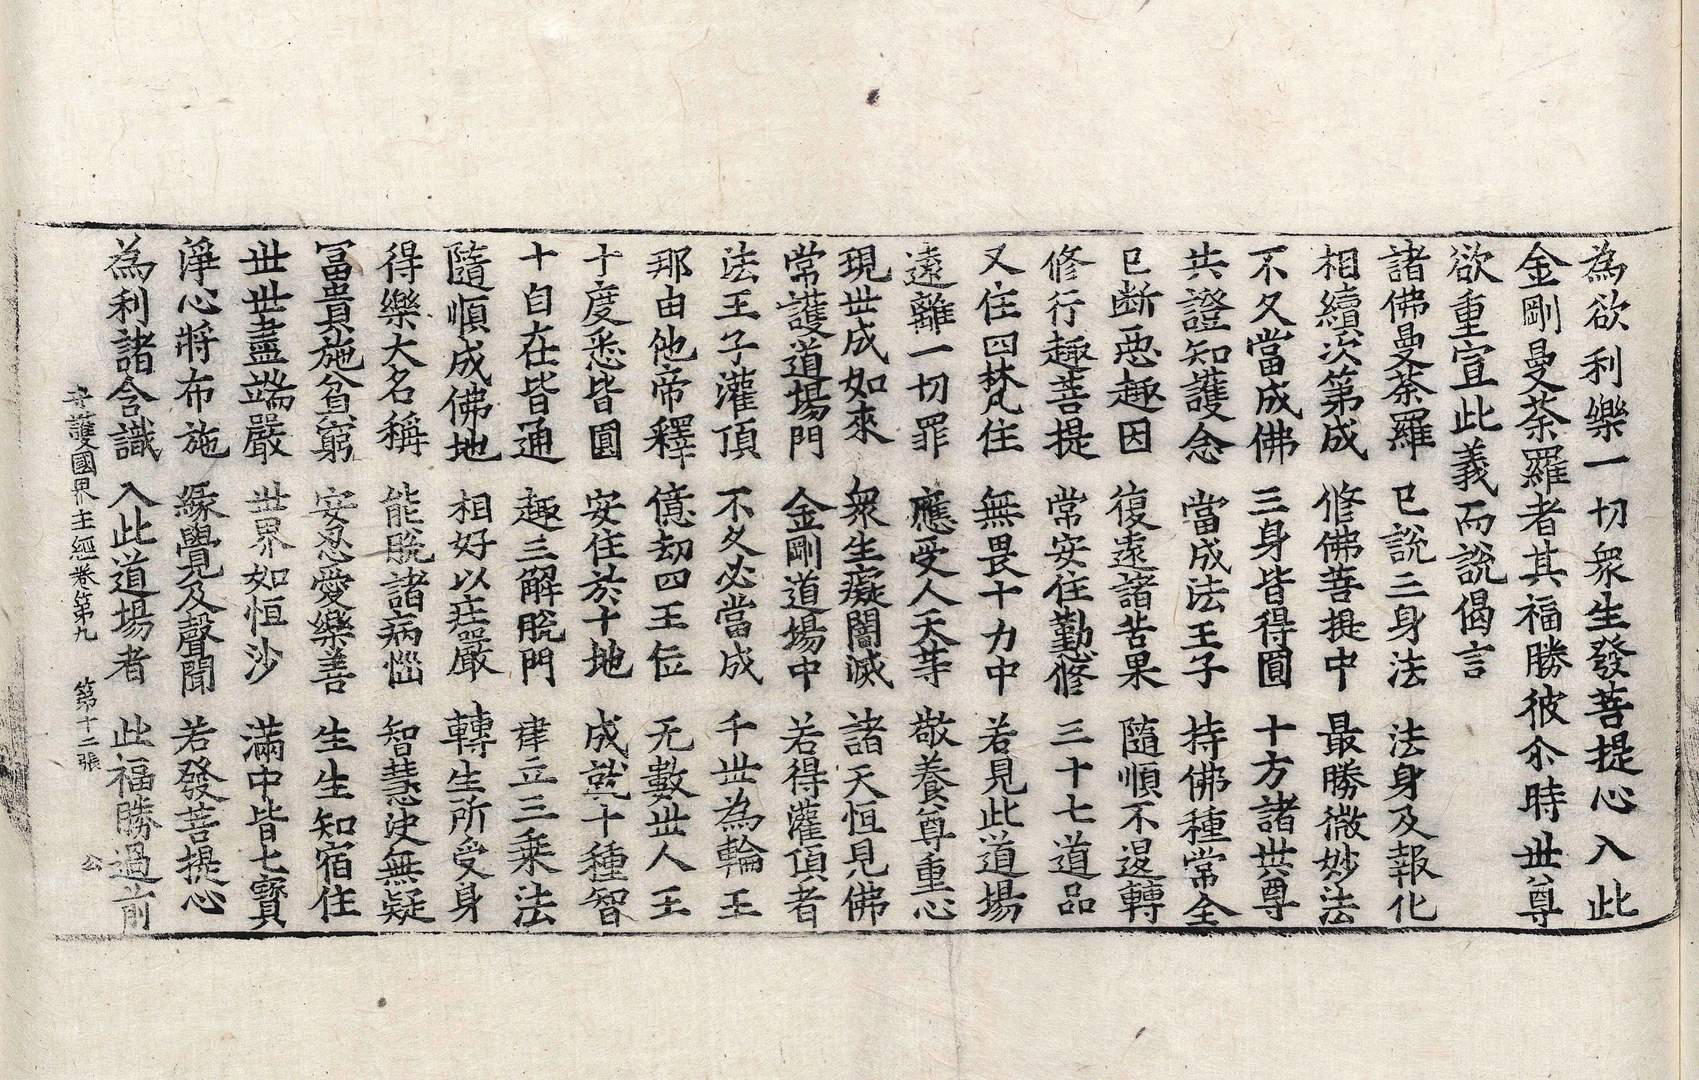 為欲利樂一切衆生發菩提心入此
金剛曼荼羅者其福勝彼尒時世尊
欲重宣此義而說偈言
諸佛曼荼羅 已說三身法 法身及報化
相續次第成 修佛菩提中 最勝微妙法
不久當成佛 三身皆得圓 十方諸世尊
共證知護念 當成法王子 持佛種常全
已斷惡趣因 復遠諸苦果 隨順不退轉
修行趣菩提 常安住勤修 三十七道品
又住四梵住 無畏十力中 若見此道場
遠離一切罪 應受人天等 敬養尊重心
現世成如來 衆生癡闇滅 諸天恒見佛
常護道場門 金剛道場中 若得灌頂者
法王子灌頂 不久必當成 千世為輪王
那由他帝釋 億劫四王位 无數世人王
十度悉皆圓 安住於十地 成就十種智
十自在皆通 趣三解脫門 建立三乘法
隨順成佛地 相好以莊嚴 轉生所受身
得樂大名稱 能脫諸病惱 智慧決無疑
冨貴施貧窮 安忍愛樂善 生生知宿住
世世盡端嚴 世界如恒沙 滿中皆七寶
淨心將布施 緣覺及聲聞 若發菩提心
為利諸含識 入此道場者 此福勝過前
守護國界主經卷第九 第十二張 公